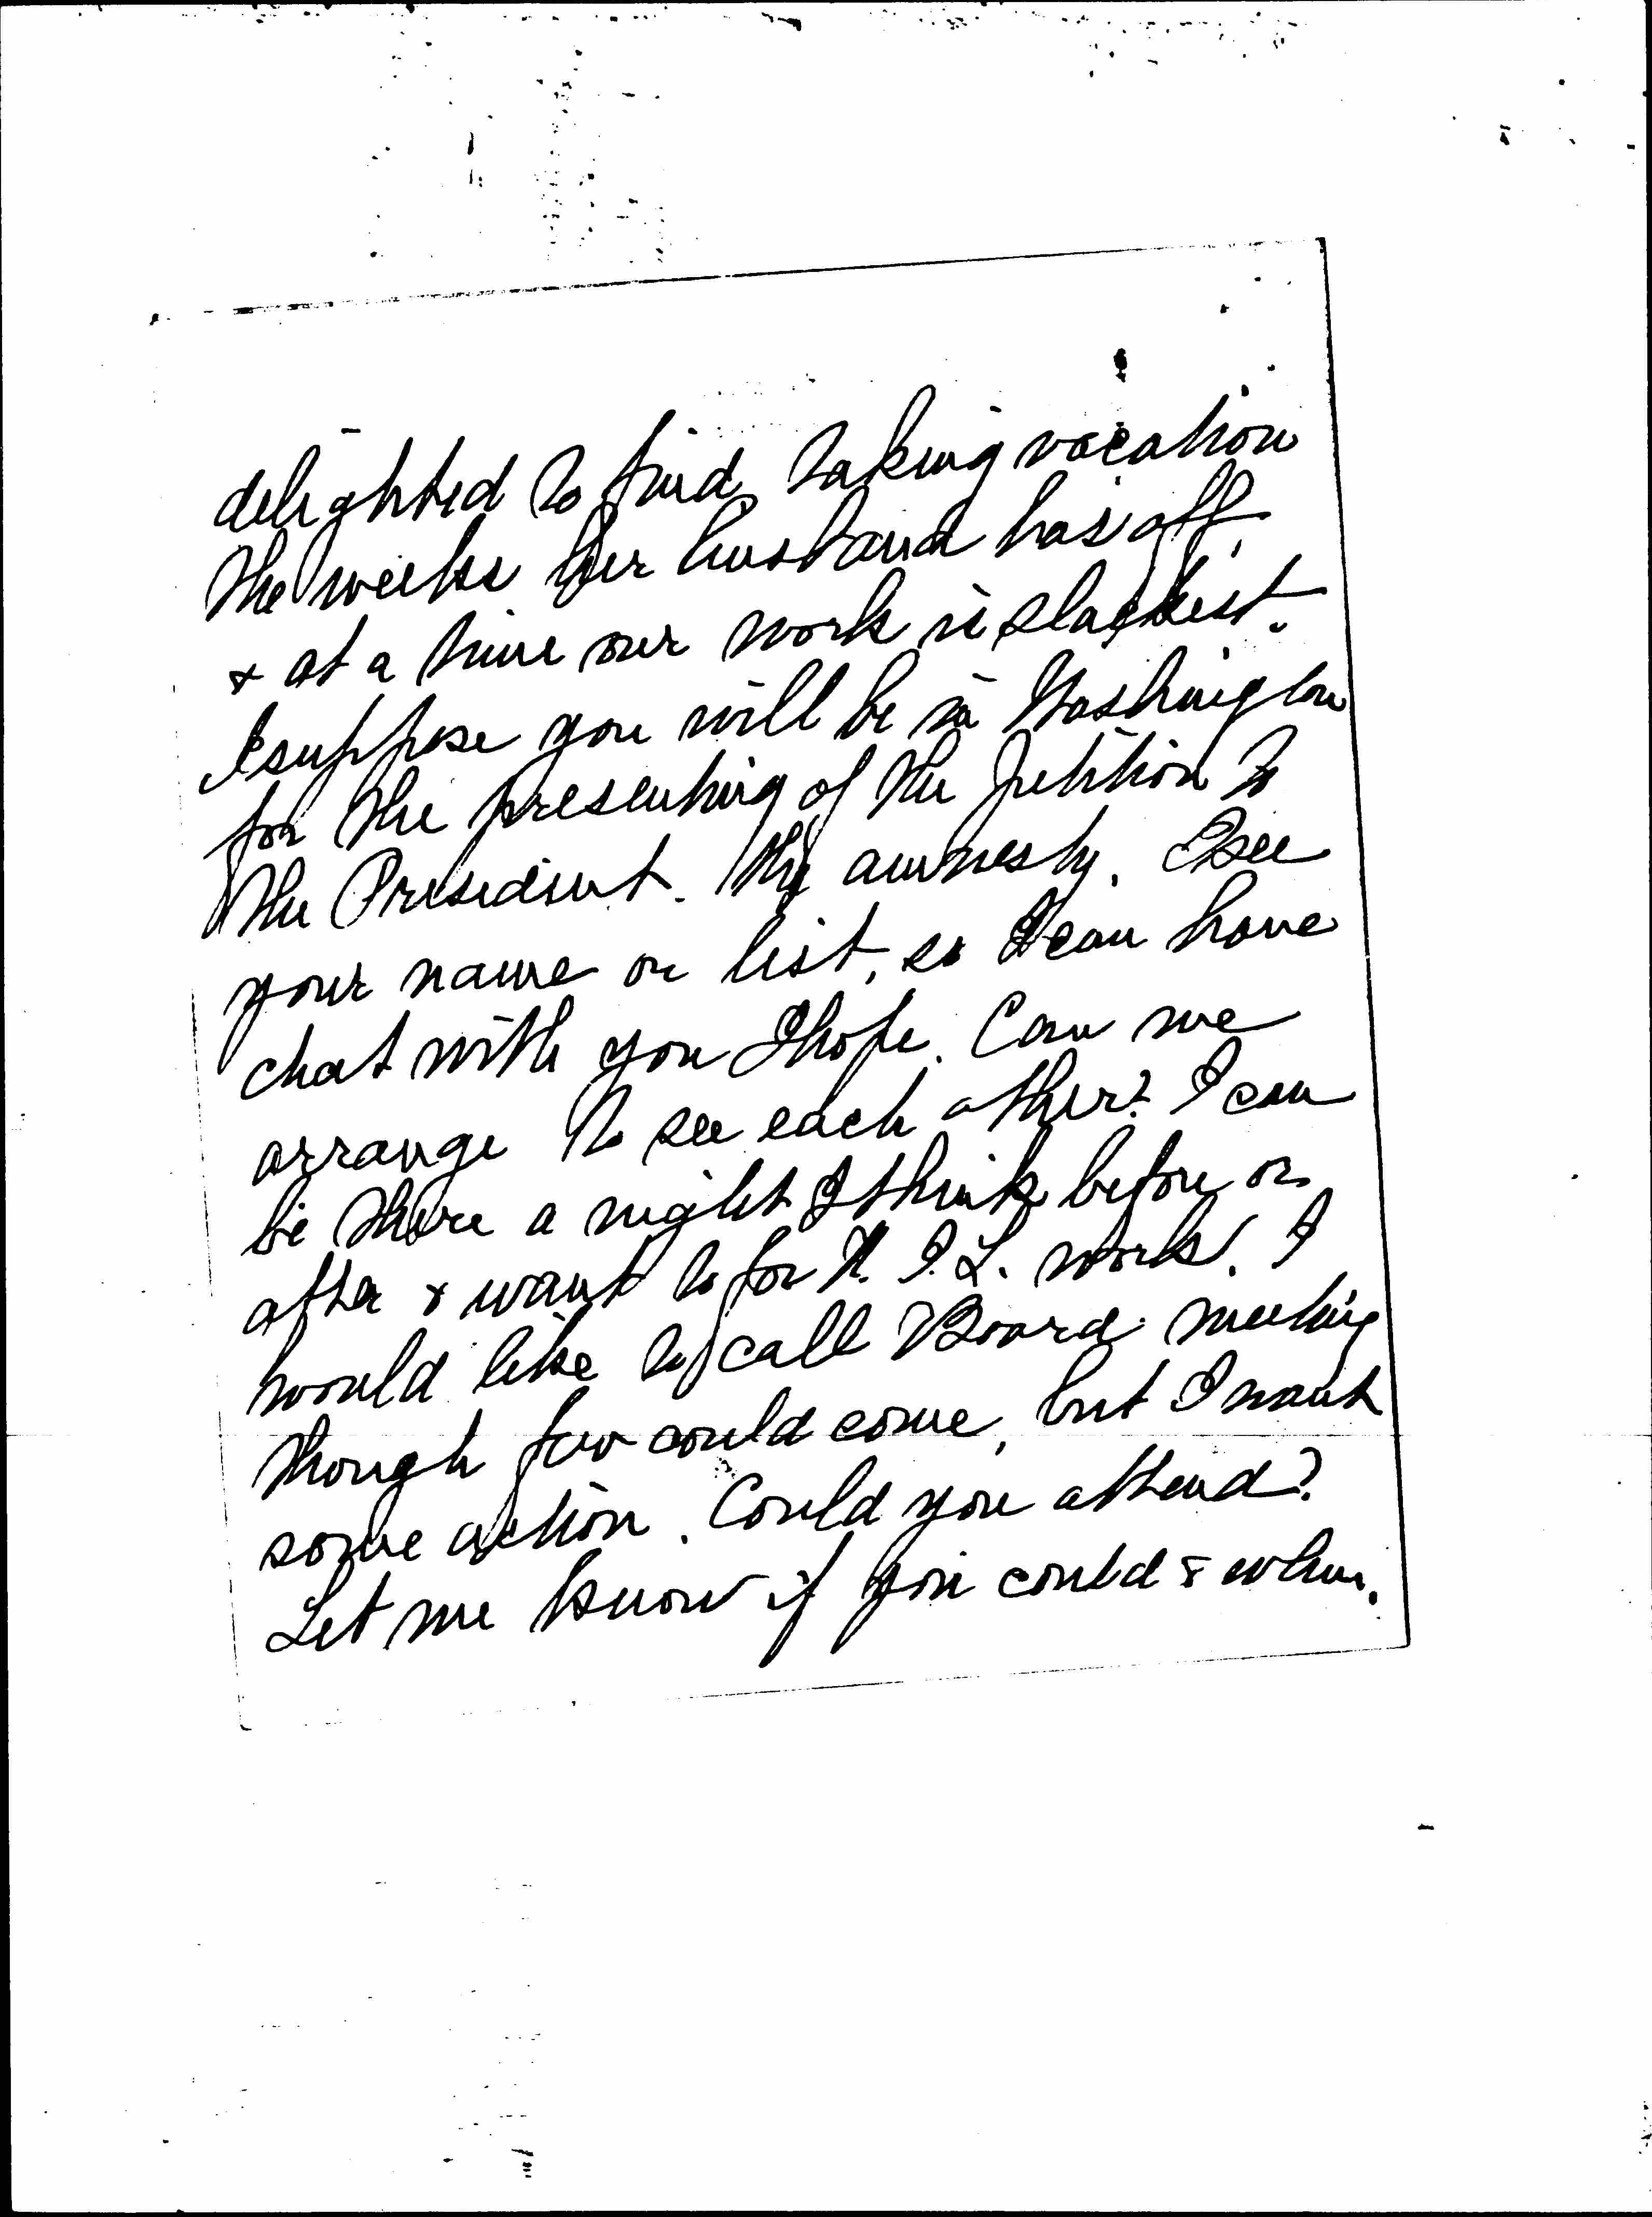 delighted to find taking vacation
the weeks her husband has off,
& at a time our work is slackest.
I suppose you will be in Washington
for the presenting of the petition to
the President. The amnesty. I see
your name on list, so I can have
chat with you I hope. Can we
arrange to see each other? I can
be there a night I think before or
after & want to for N. I. L. work. I
would like to call Board meeting
though few could come, but I want
some action. Could you attend?
Let me know if you could & when.